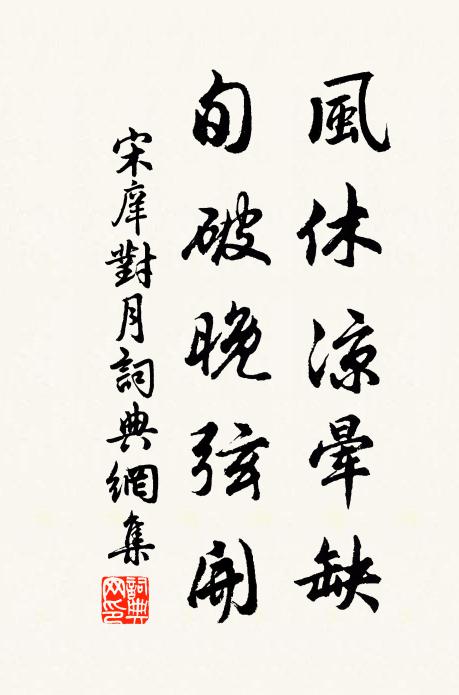 風休涼暈缺
旬破晚弦開
宋庠對月詞典網集
詞典網印